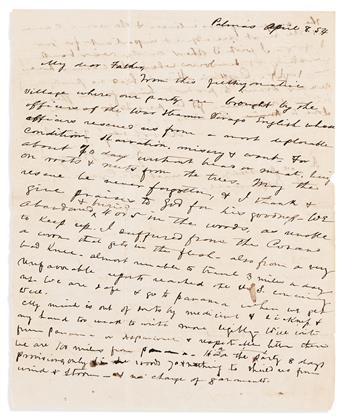 Palmas April 8. 54
My dear Father
From this filthy native
village where our party was brought by the
officers of the War Steamer Virago English whose
officers rescued us from a most deplorable
condition Starvation, misery & want. For
about days without bread or meat, living
on roots & nuts from the trees. May the
rescue be never forgotten, & I thank &
give praises to God for his goodness. We
abandoned & buried 4 or 5 in the woods, as unable
to keep up. I suffered from the
a worm that gets in the flesh. also from a very
bad Knee. almost unable to travel 3 miles a day
unfavorable reports reached the U.S. concerning
us. We are safe & go to panama when we get
well.
My mind is out of sorts by medicine & sickness &
my hand too weak to write more legibly. Will write
from panama or & respectable letter there
we are 100 miles from panama. the party 8 days
provisions only in the woods & nothing to shield us from
wind & storm & no change of garments.